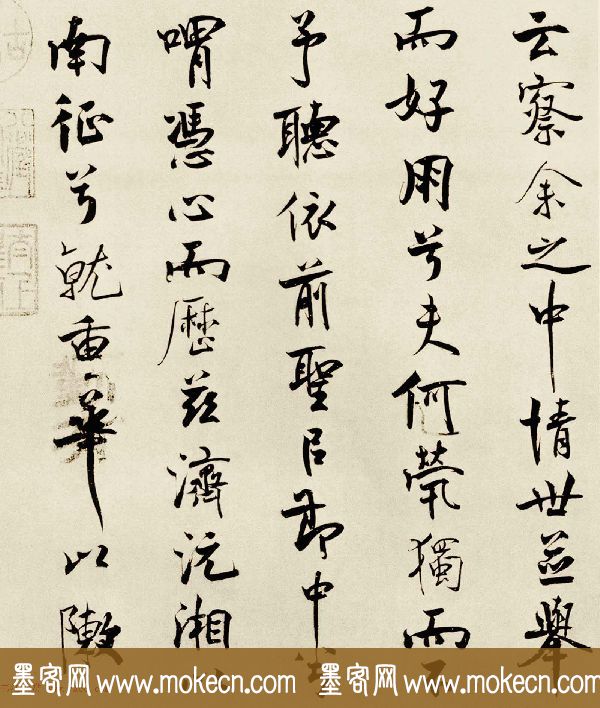 云察余之中情世並舉
而好朋兮夫何煢獨而
予聽依前聖㠯節中
喟憑心而歷茲濟沅湘
南征兮就重華以敶
墨客网 www.mokecn.com 墨客网 www.mokecn.com